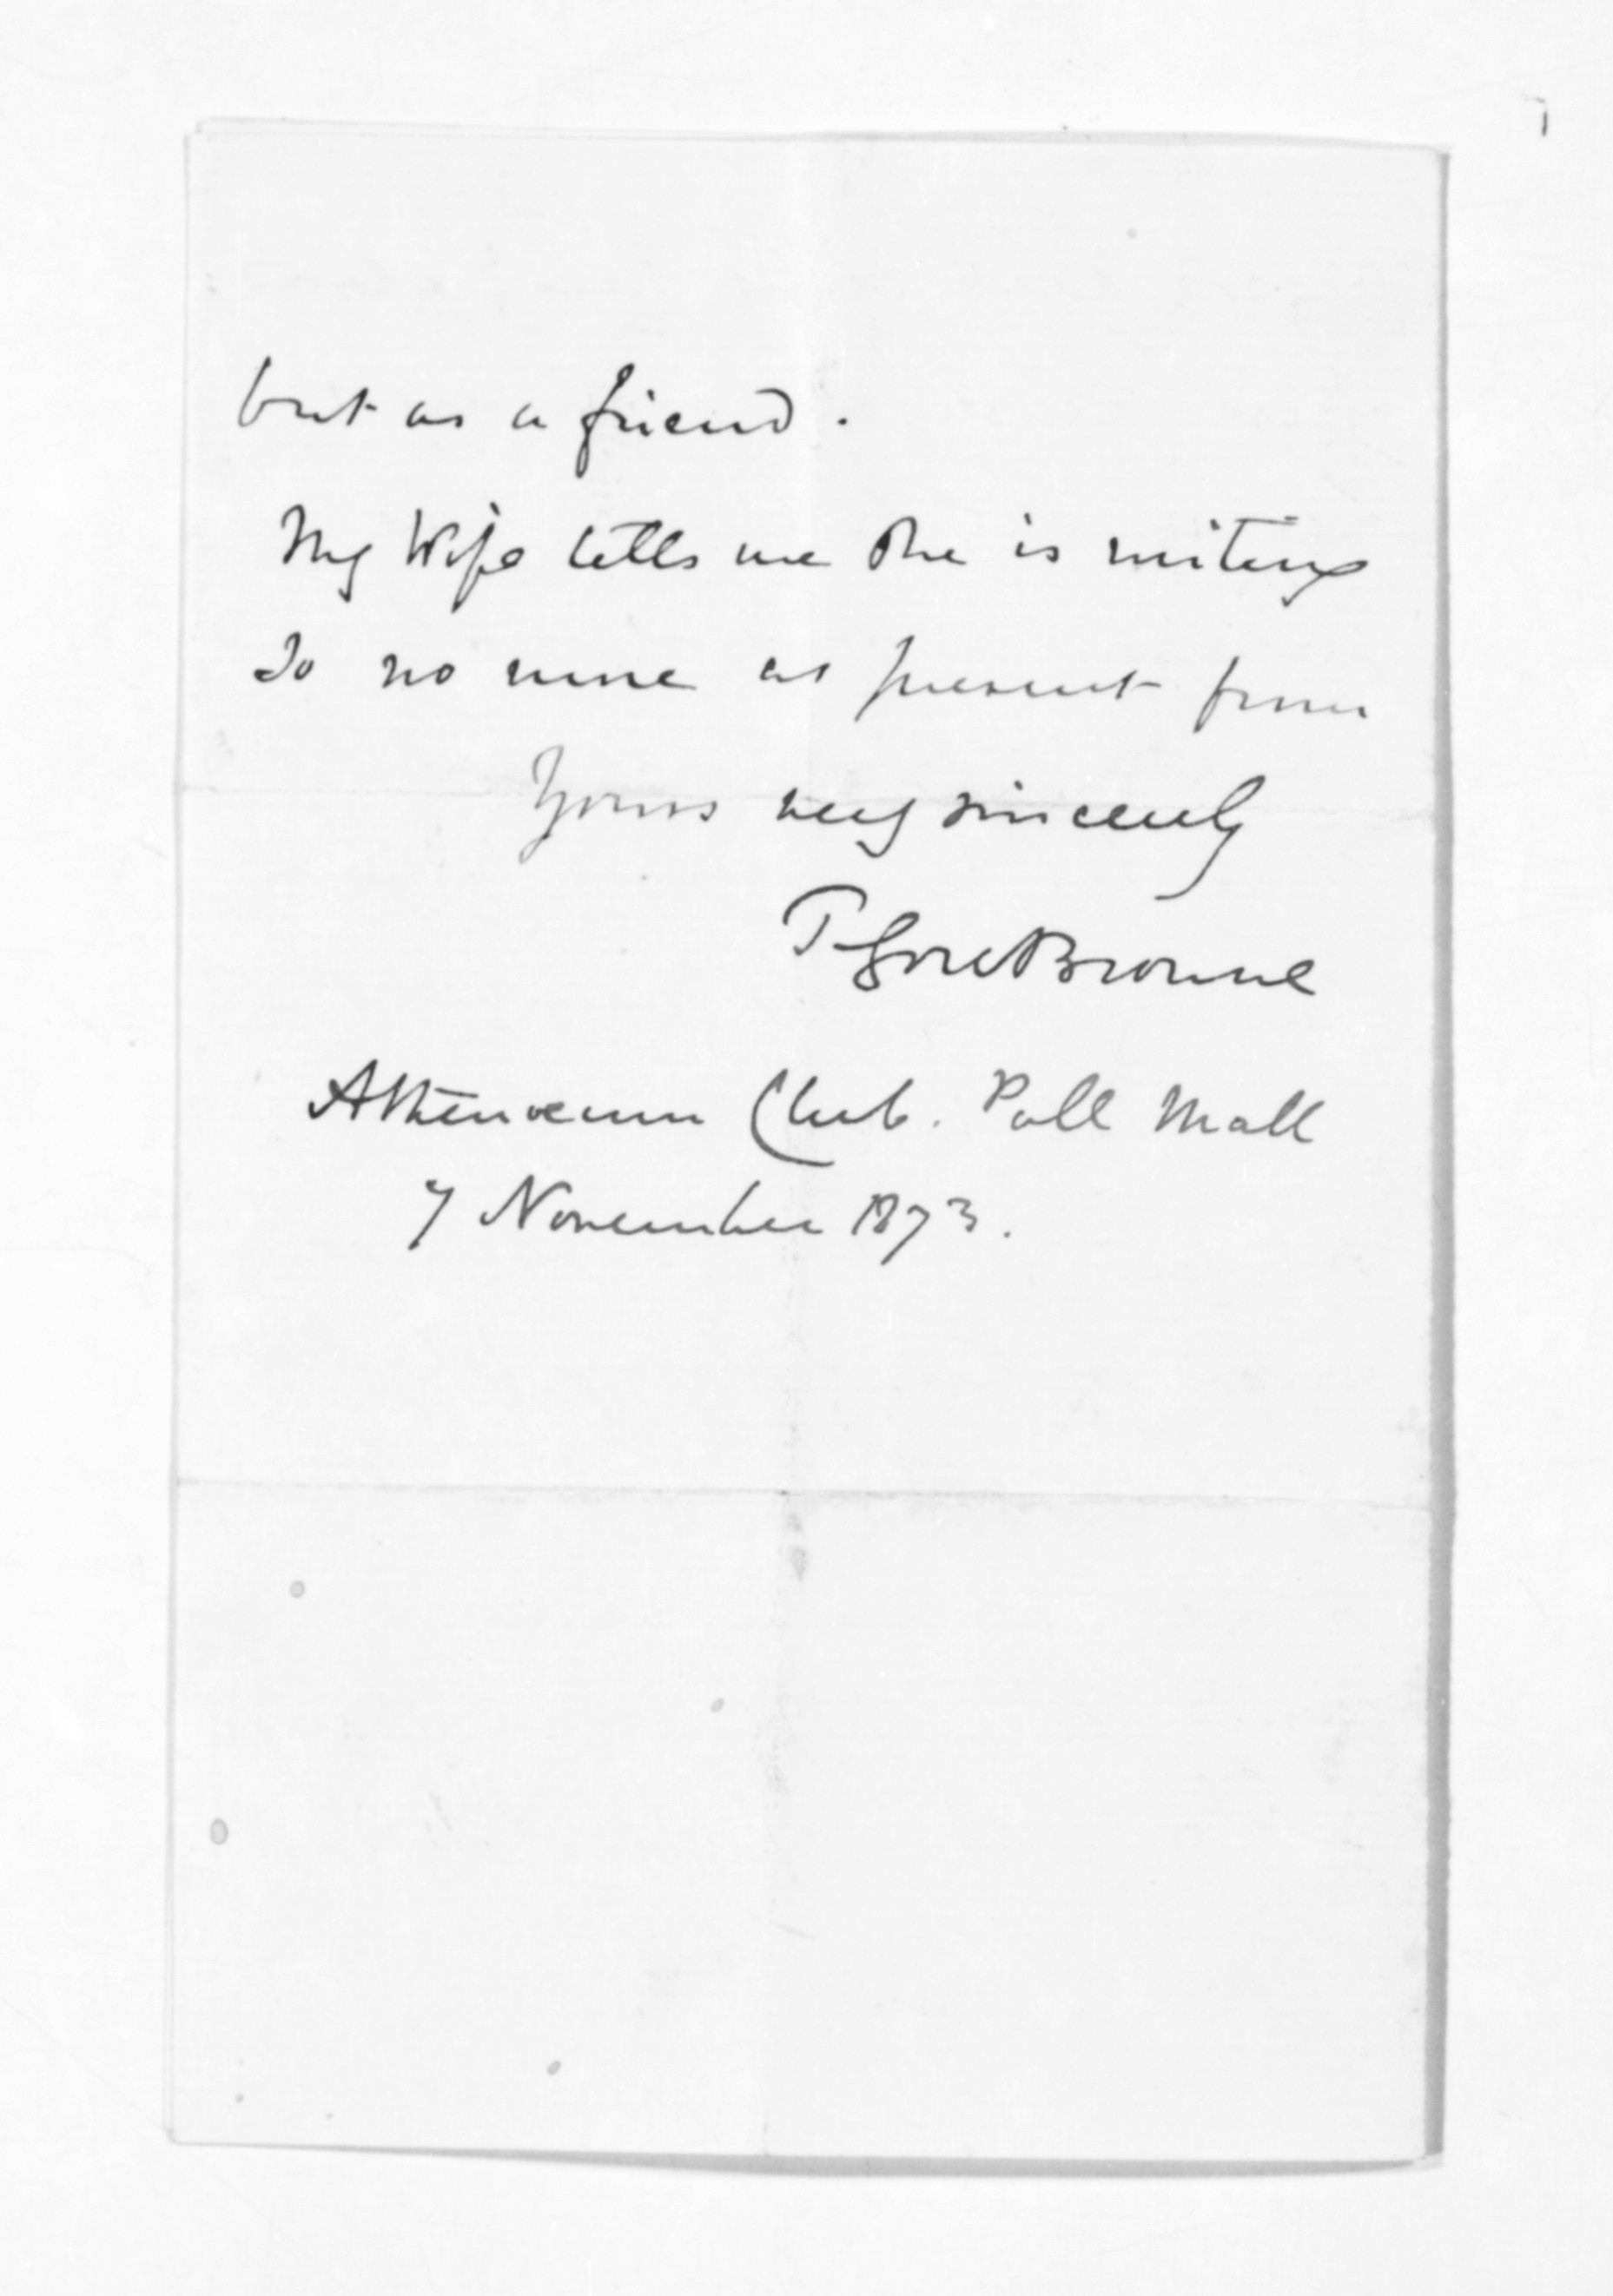 but as a friend.
My Wife tells me she is writing
so no more at present from
Yours very sincerely
T Gore Browne
Athenaeum Club. Pall Mall
7 November 1873.